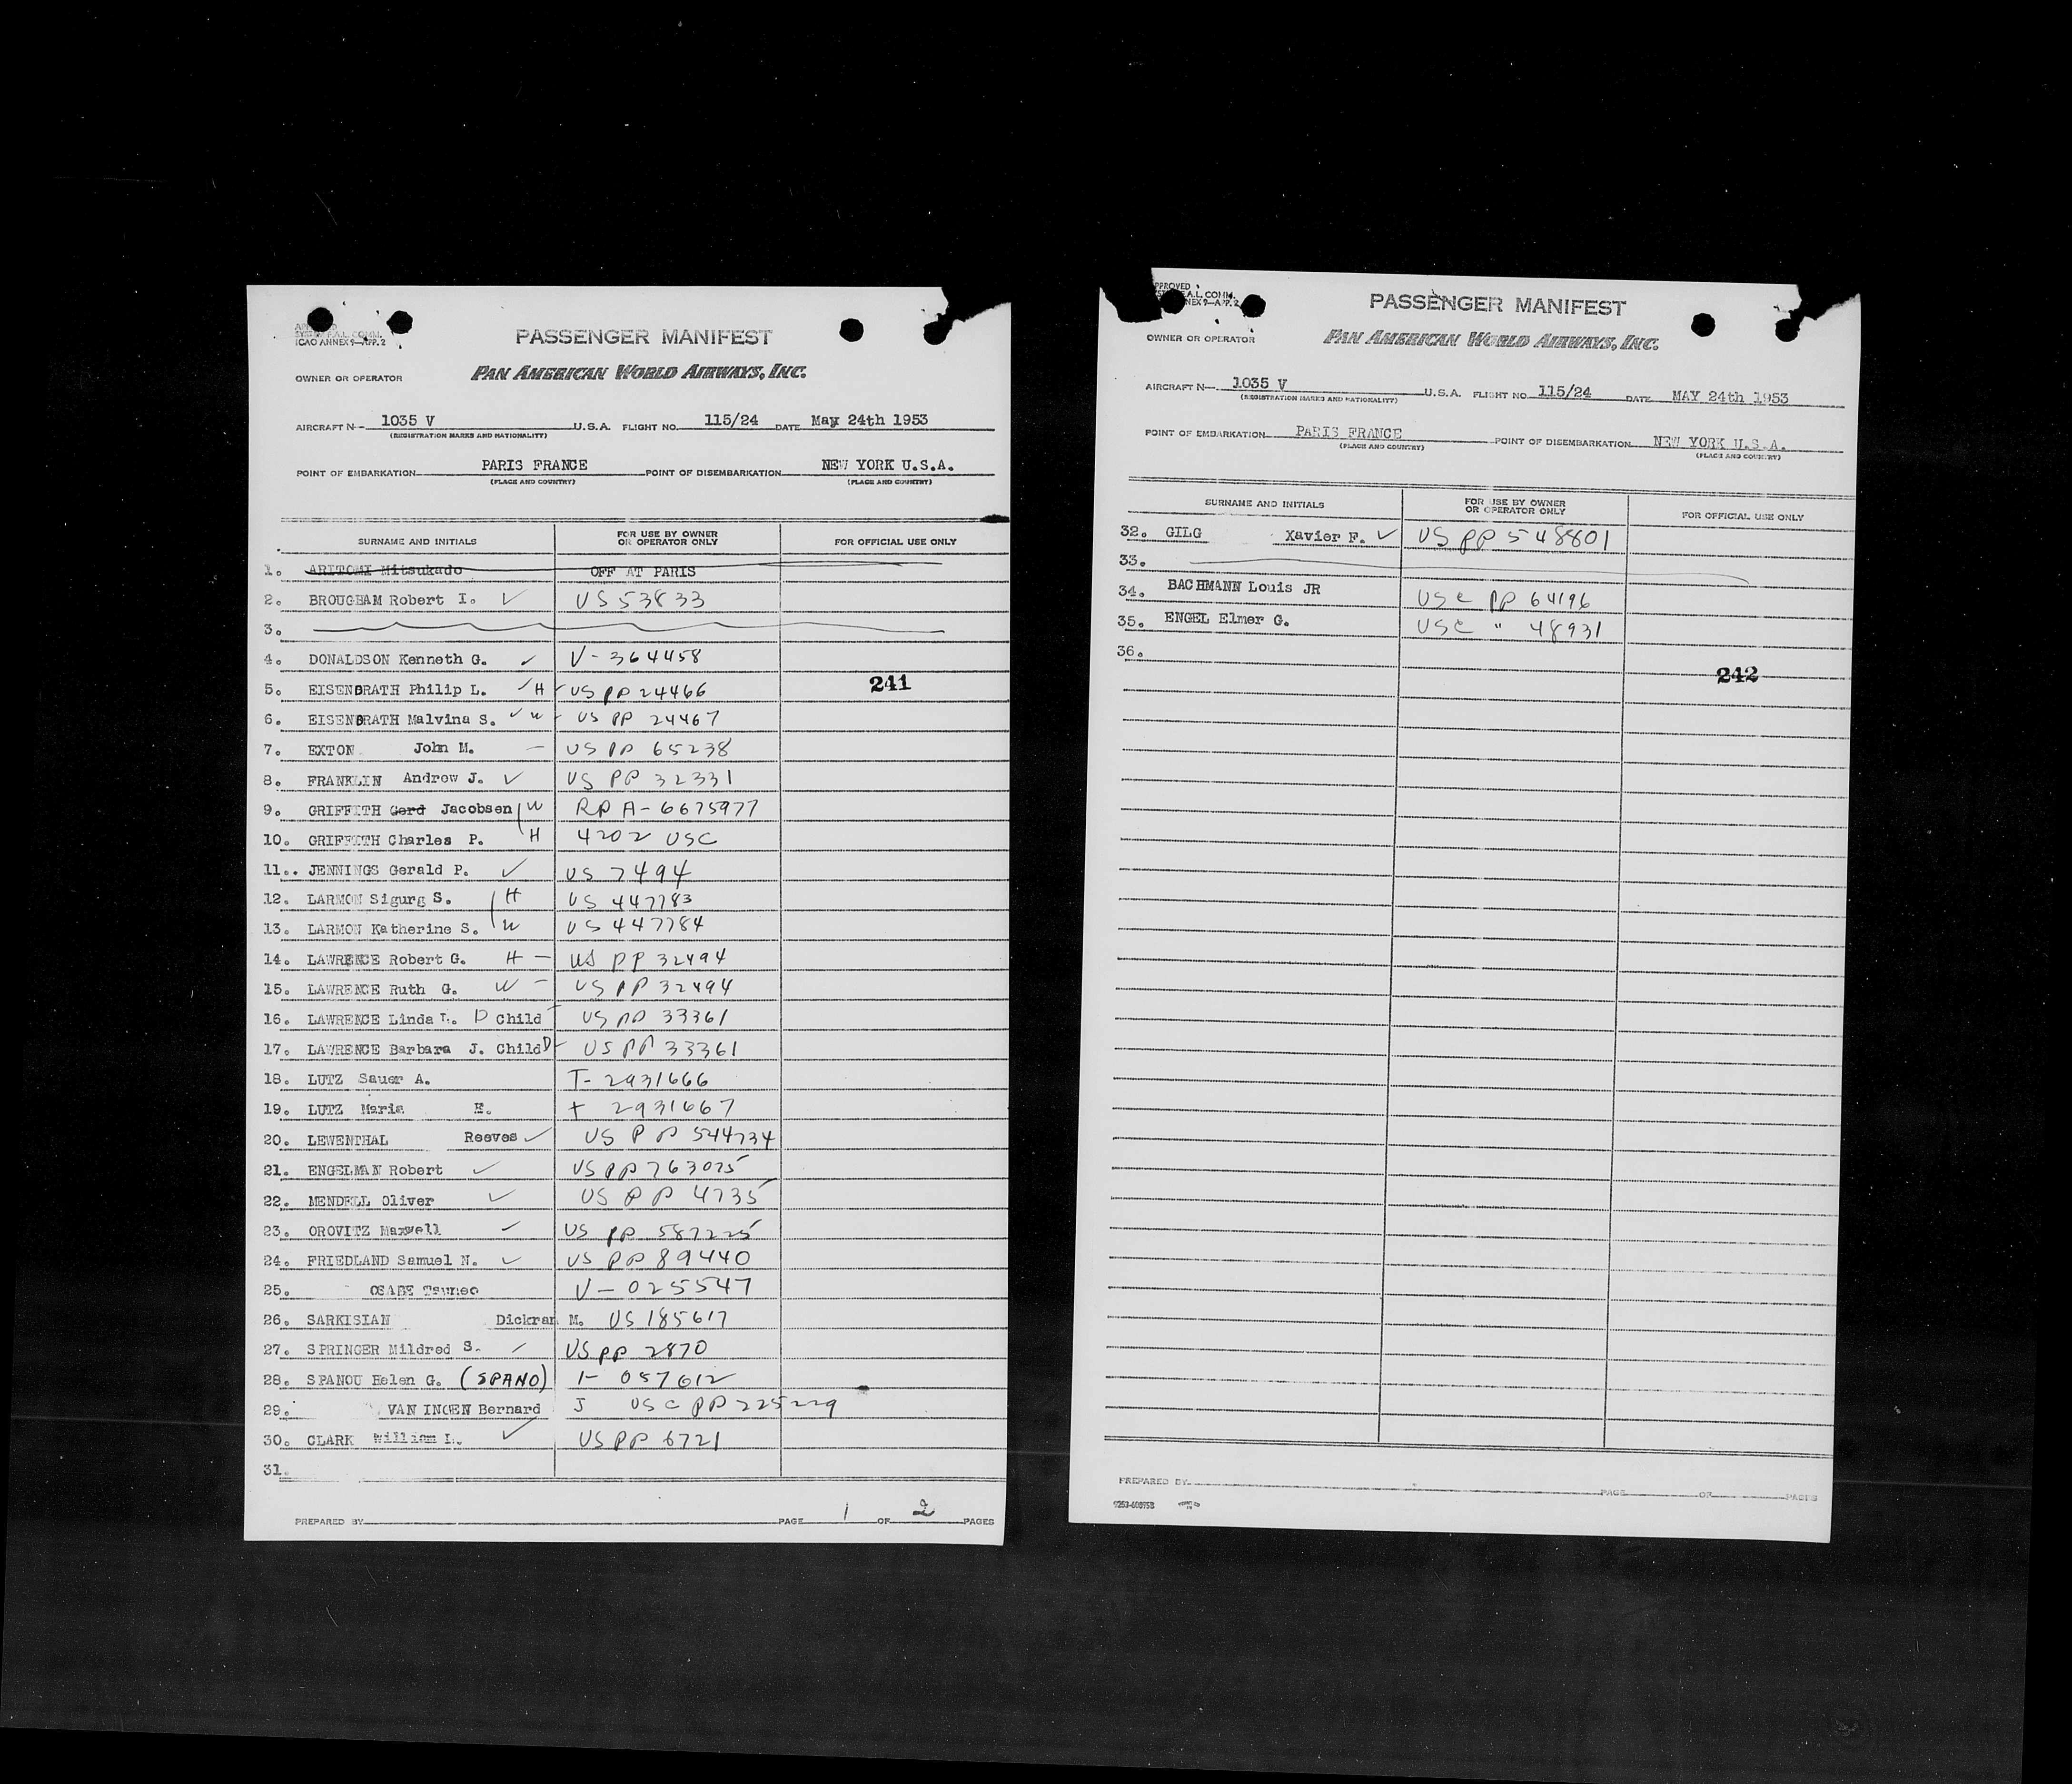 ICAO ANNEX 9—APP. 2
PASSENGER MANIFEST
OWNER OR OPERATOR
PAN AMERICAN WORLD AIRWAYS, INC.
AIRCRAFT N- 1035 V U.S.A. FLIGHT NO. 115/24 DATE May 24th 1953
(REGISTRATION MARKS AND NATIONALITY)
POINT OF EMBARKATION PARIS FRANCE POINT OF DISEMBARKATION NEW YORK U.S.A.
(PLACE AND COUNTRY) (PLACE AND COUNTRY)
SURNAME AND INITIALS FOR USE BY OWNER OR OPERATOR ONLY FOR OFFICIAL USE ONLY
1. ARITOMI Mitsukado OFF AT PARIS
2. BROUGHAM Robert I. ✓ US 53833
3.
4. DONALDSON Kenneth G. ✓ V-364458
5. EISENDRATH Philip L. ✓ H US PP 24466 241
6. EISENDRATH Malvina S. ✓ W US PP 24467
7. EXTON John M. — US PP 65238
8. FRANKLIN Andrew J. ✓ US PP 32331
9. GRIFFITH Gerd Jacobsen W RP A-6675977
10. GRIFFITH Charles P. H 4202 USC
11.. JENNINGS Gerald P. ✓ US 7494
12. LARMON Sigurg S. H US 447783
13. LARMON Katherine S. W US 447784
14. LAWRENCE Robert G. H — US PP 32494
15. LAWRENCE Ruth G. W — US PP 32494
16. LAWRENCE Linda L. D Child US PP 33361
17. LAWRENCE Barbara J. Child D US PP 33361
18. LUTZ Sauer A. T-2931666
19. LUTZ Maria E. T 2931667
20. LEWENTHAL Reeves ✓ US PP 544734
21. ENGELMAN Robert ✓ US PP 763075
22. MENDELL Oliver ✓ US PP 4735
23. OROVITZ Maxwell ✓ US PP 587225
24. FRIEDLAND Samuel N. ✓ US PP 89440
25. OSABE Tsuneo V-025547
26. SARKISIAN Dickran M. US 185617
27. SPRINGER Mildred S. ✓ US PP 2870
28. SPANOU Helen G. (SPANO) I- 057612
29. VAN INGEN Bernard J USC PP 225229
30. CLARK William L. ✓ US PP 6721
31.
PREPARED BY PAGE 1 OF 2 PAGES
APPROVED
A.L. COMM.
ANNEX 9—APP. 2
PASSENGER MANIFEST
OWNER OR OPERATOR
PAN AMERICAN WORLD AIRWAYS, INC.
AIRCRAFT N— 1035 V U.S.A. FLIGHT NO. 115/24 DATE MAY 24th 1953
(REGISTRATION MARKS AND NATIONALITY)
POINT OF EMBARKATION PARIS FRANCE POINT OF DISEMBARKATION NEW YORK U.S.A.
(PLACE AND COUNTRY) (PLACE AND COUNTRY)
SURNAME AND INITIALS FOR USE BY OWNER OR OPERATOR ONLY FOR OFFICIAL USE ONLY
32. GILG Xavier F. ✓ US PP 548801
33.
34. BACHMANN Louis JR USC PP 64196
35. ENGEL Elmer G. USC " 48931
36.
242
PREPARED BY PAGE OF PAGES